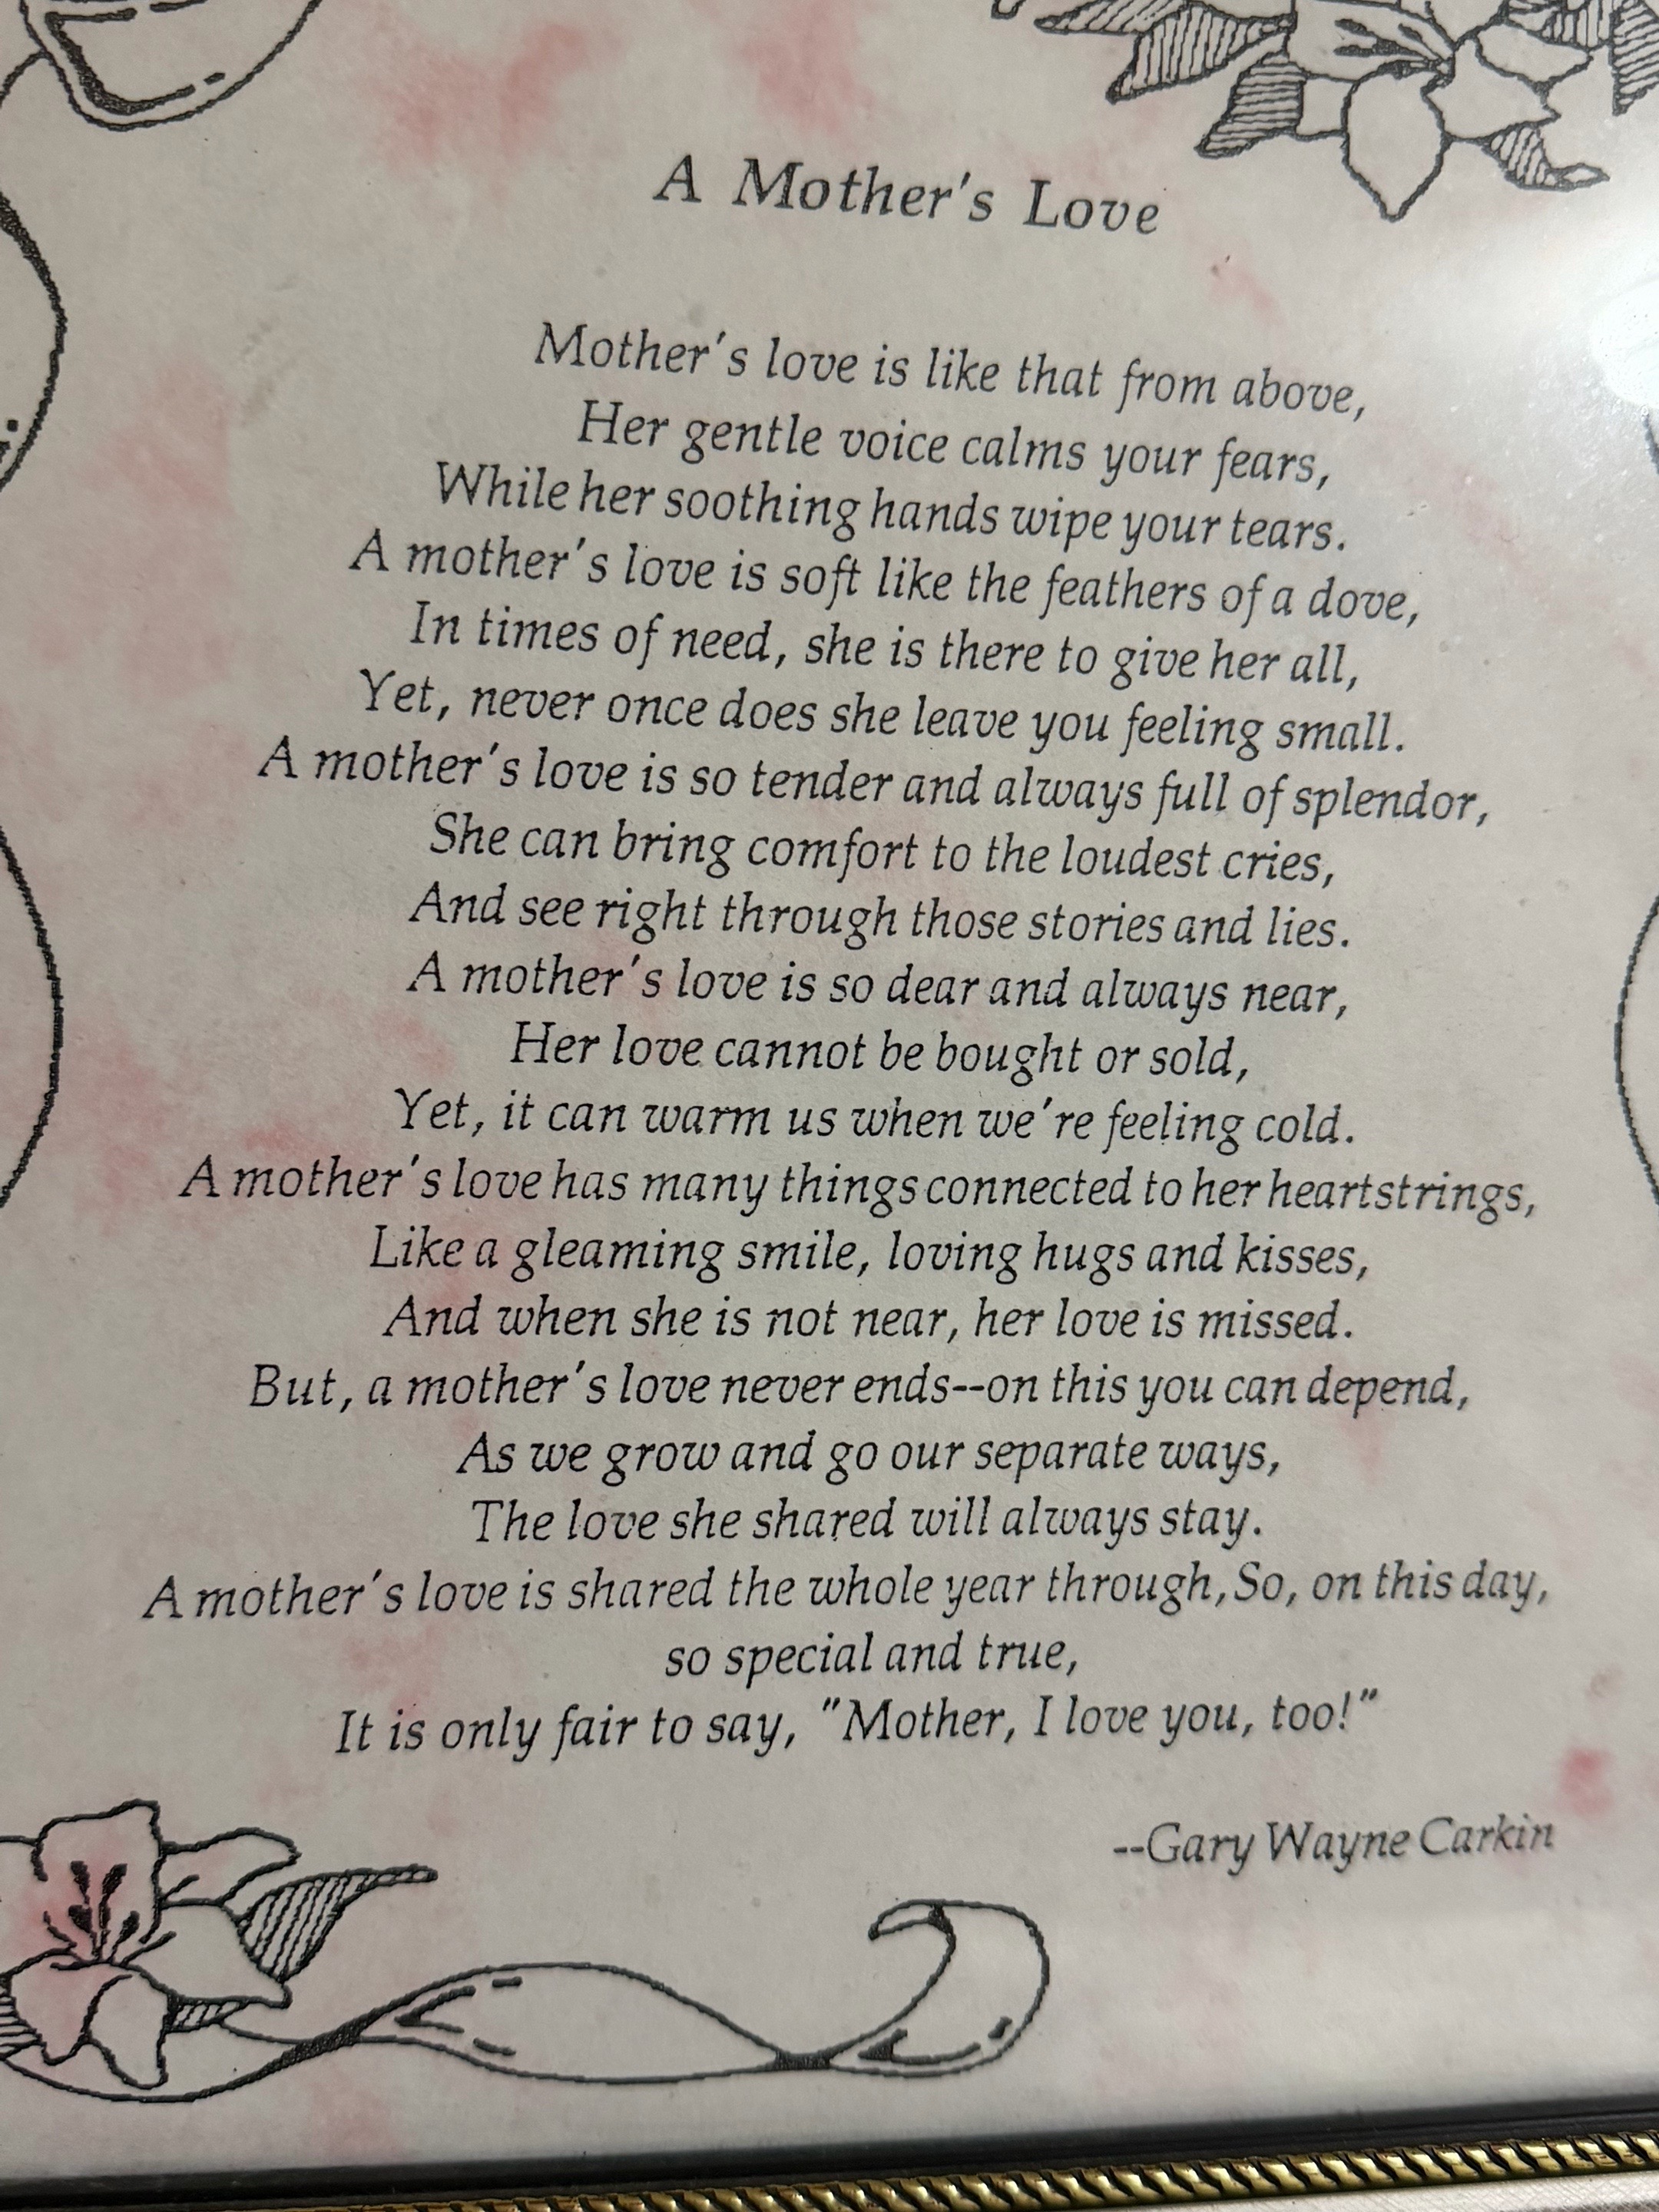 A Mother's Love
Mother's love is like that from above,
Her gentle voice calms your fears,
While her soothing hands wipe your tears.
A mother's love is soft like the feathers of a dove,
In times of need, she is there to give her all,
Yet, never once does she leave you feeling small.
A mother's love is so tender and always full of splendor,
She can bring comfort to the loudest cries,
And see right through those stories and lies.
A mother's love is so dear and always near,
Her love cannot be bought or sold,
Yet, it can warm us when we're feeling cold.
A mother's love has many things connected to her heartstrings,
Like a gleaming smile, loving hugs and kisses,
And when she is not near, her love is missed.
But, a mother's love never ends--on this you can depend,
As we grow and go our separate ways,
The love she shared will always stay.
A mother's love is shared the whole year through, So, on this day,
so special and true,
It is only fair to say, "Mother, I love you, too!"
--Gary Wayne Carkin